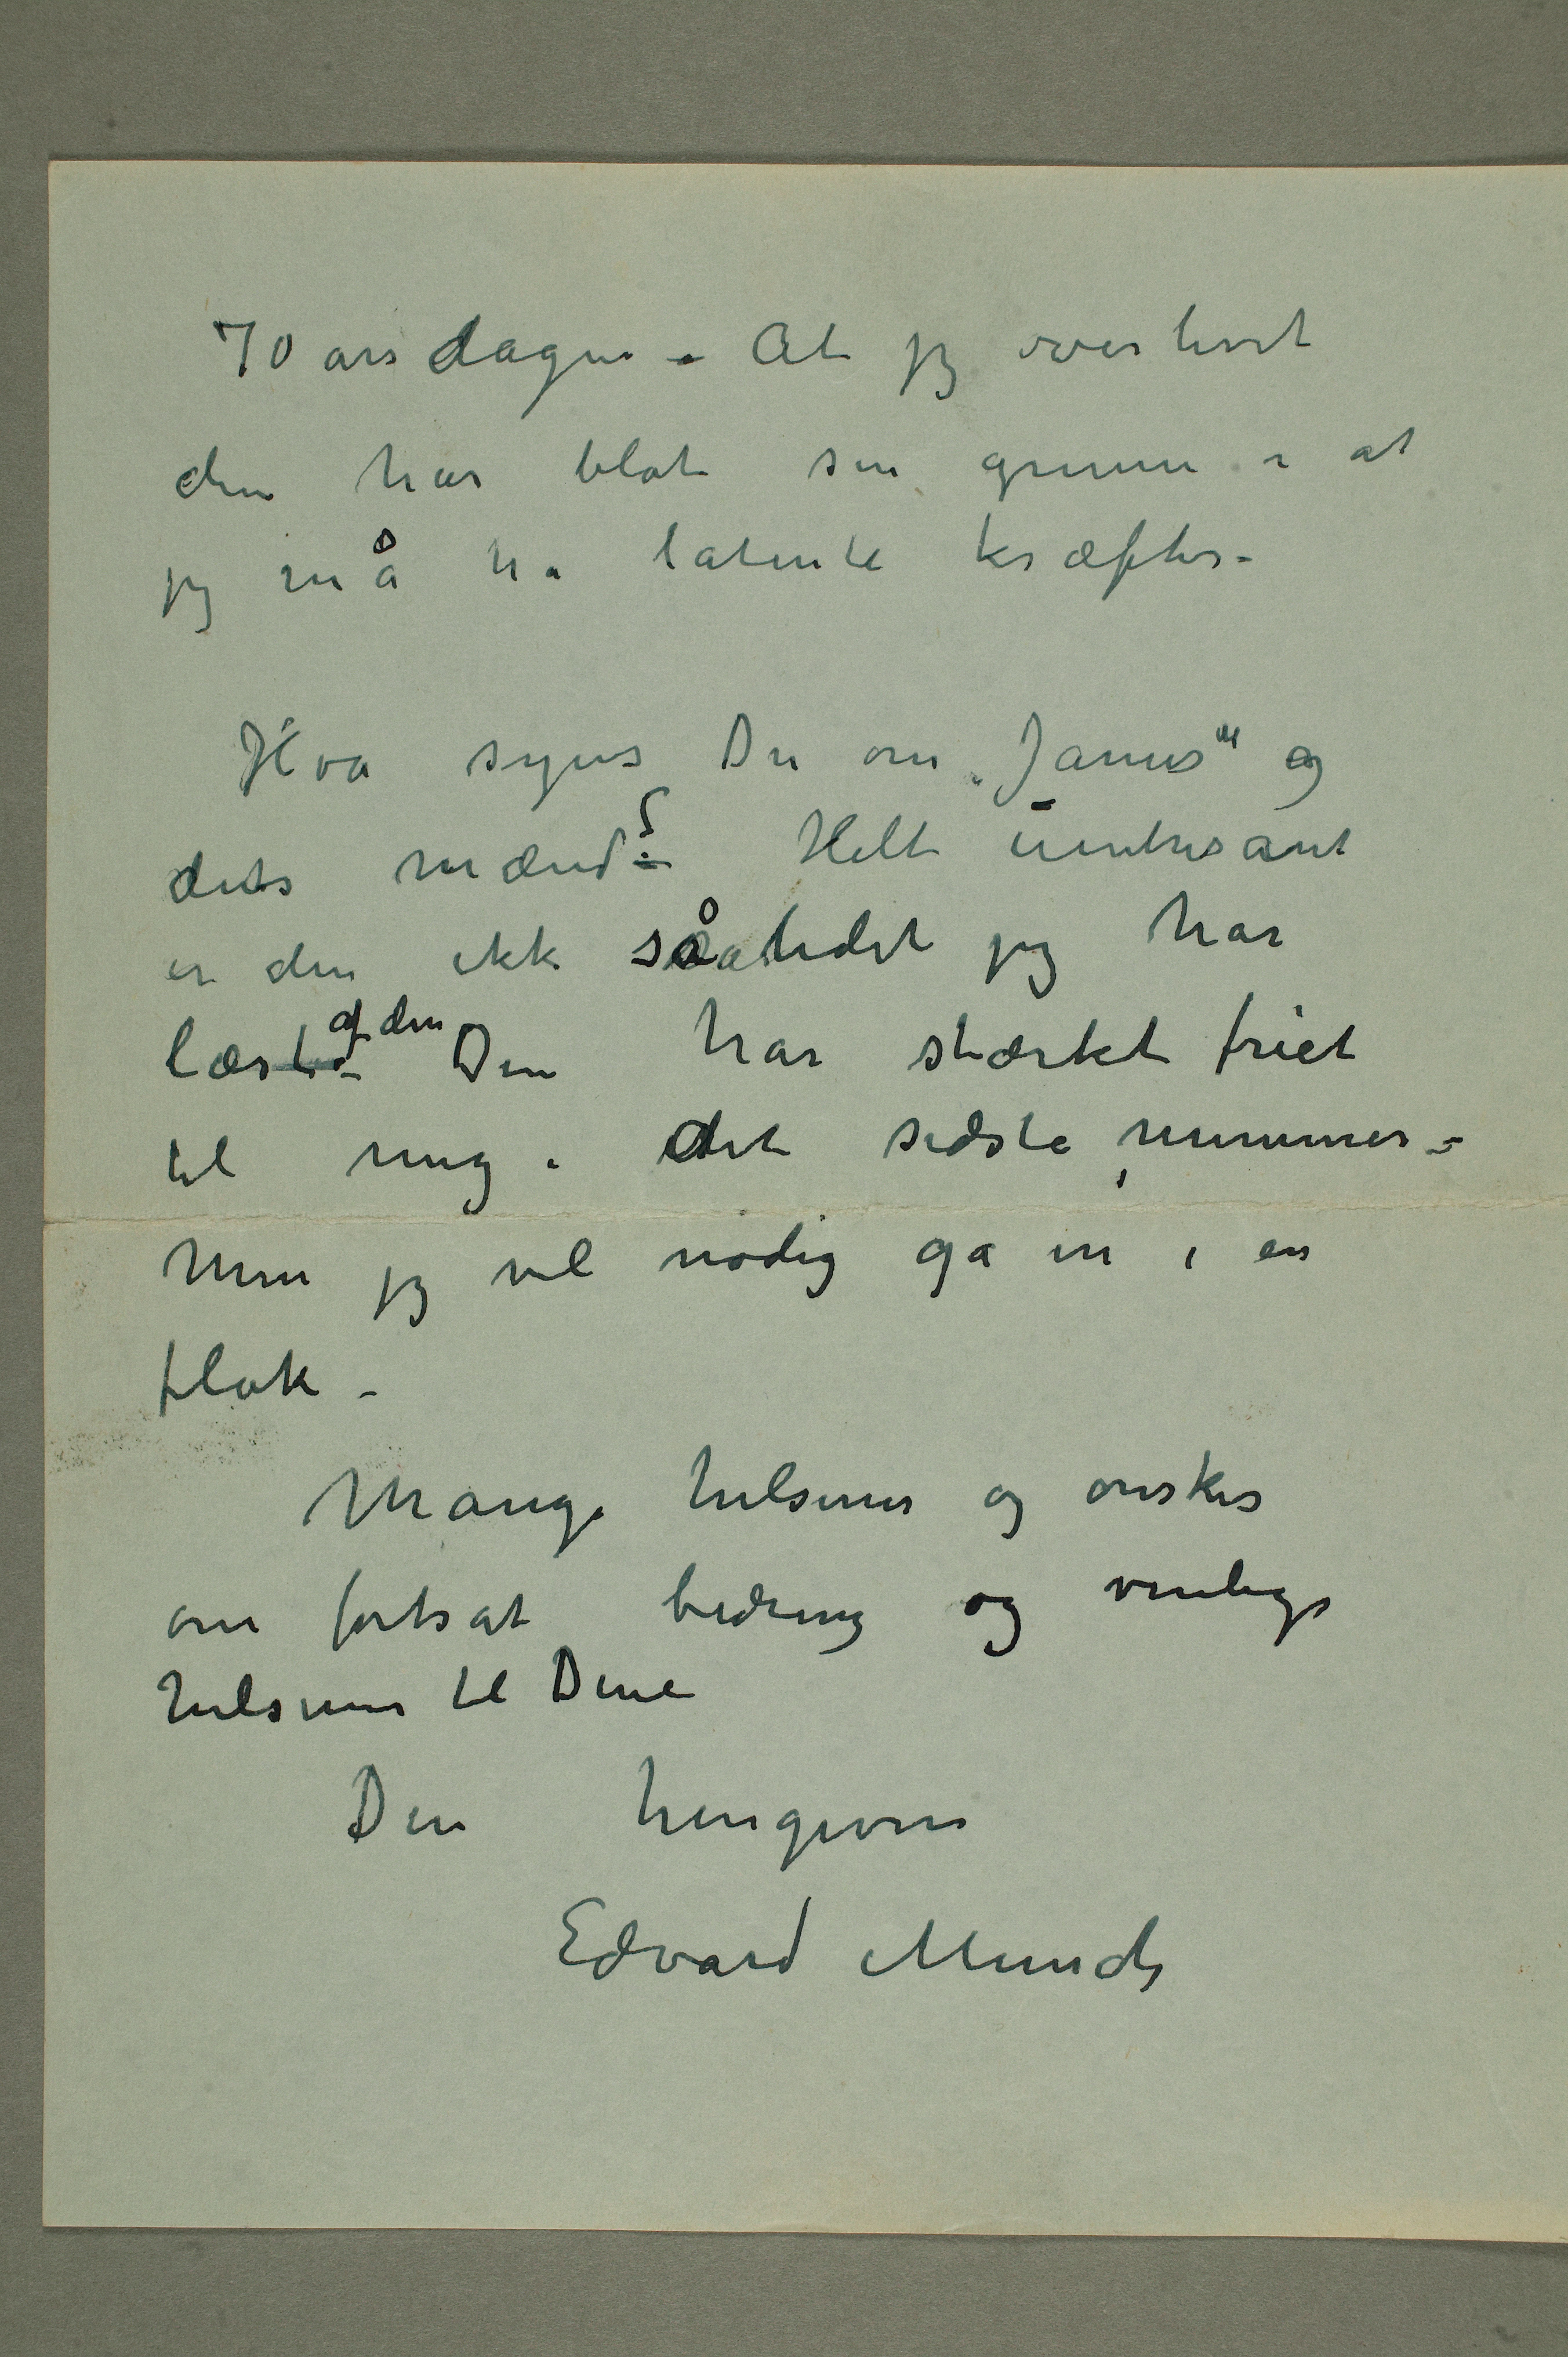 70 års dagen – At jeg overlevet
den har blot sin grunn i at
jeg må ha latente kræfter –
Hva synes Du om „Janus“ og
dets mænd? Helt uintresant
er den ikke så lidet jeg har
læst af den – Den har stærkt friet
til mig i det sidste nummer –
Men jeg vil nødig gå inn i en
flok –
Mange hilsener og ønsker
om fortsat bedring og venlige
hilsener til Dine
Din hengivne
Edvard Munch